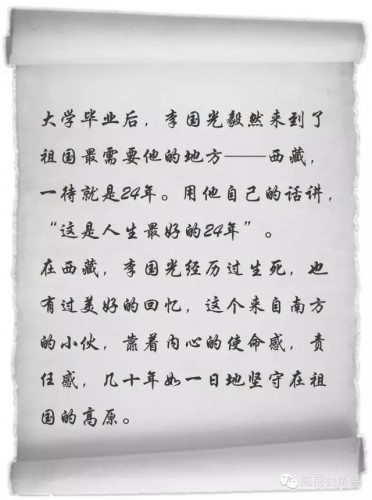 大学毕业后，李国光毅然来到了
祖国最需要他的地方——西藏，
一待就是24年。用他自己的话讲，
“这是人生最好的24年”。
在西藏，李国光经历过生死，也
有过美好的回忆，这个来自南方
的小伙，靠着内心的使命感，责
任感，几十年如一日地坚守在祖
国的高原。